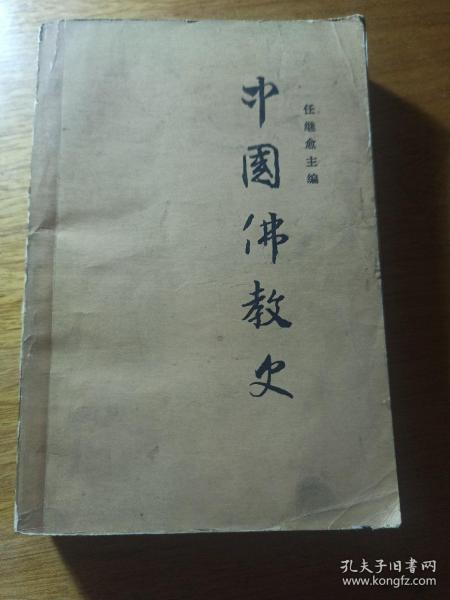 任继愈主编
中國佛教史
孔夫子旧书网
www.kongfz.com